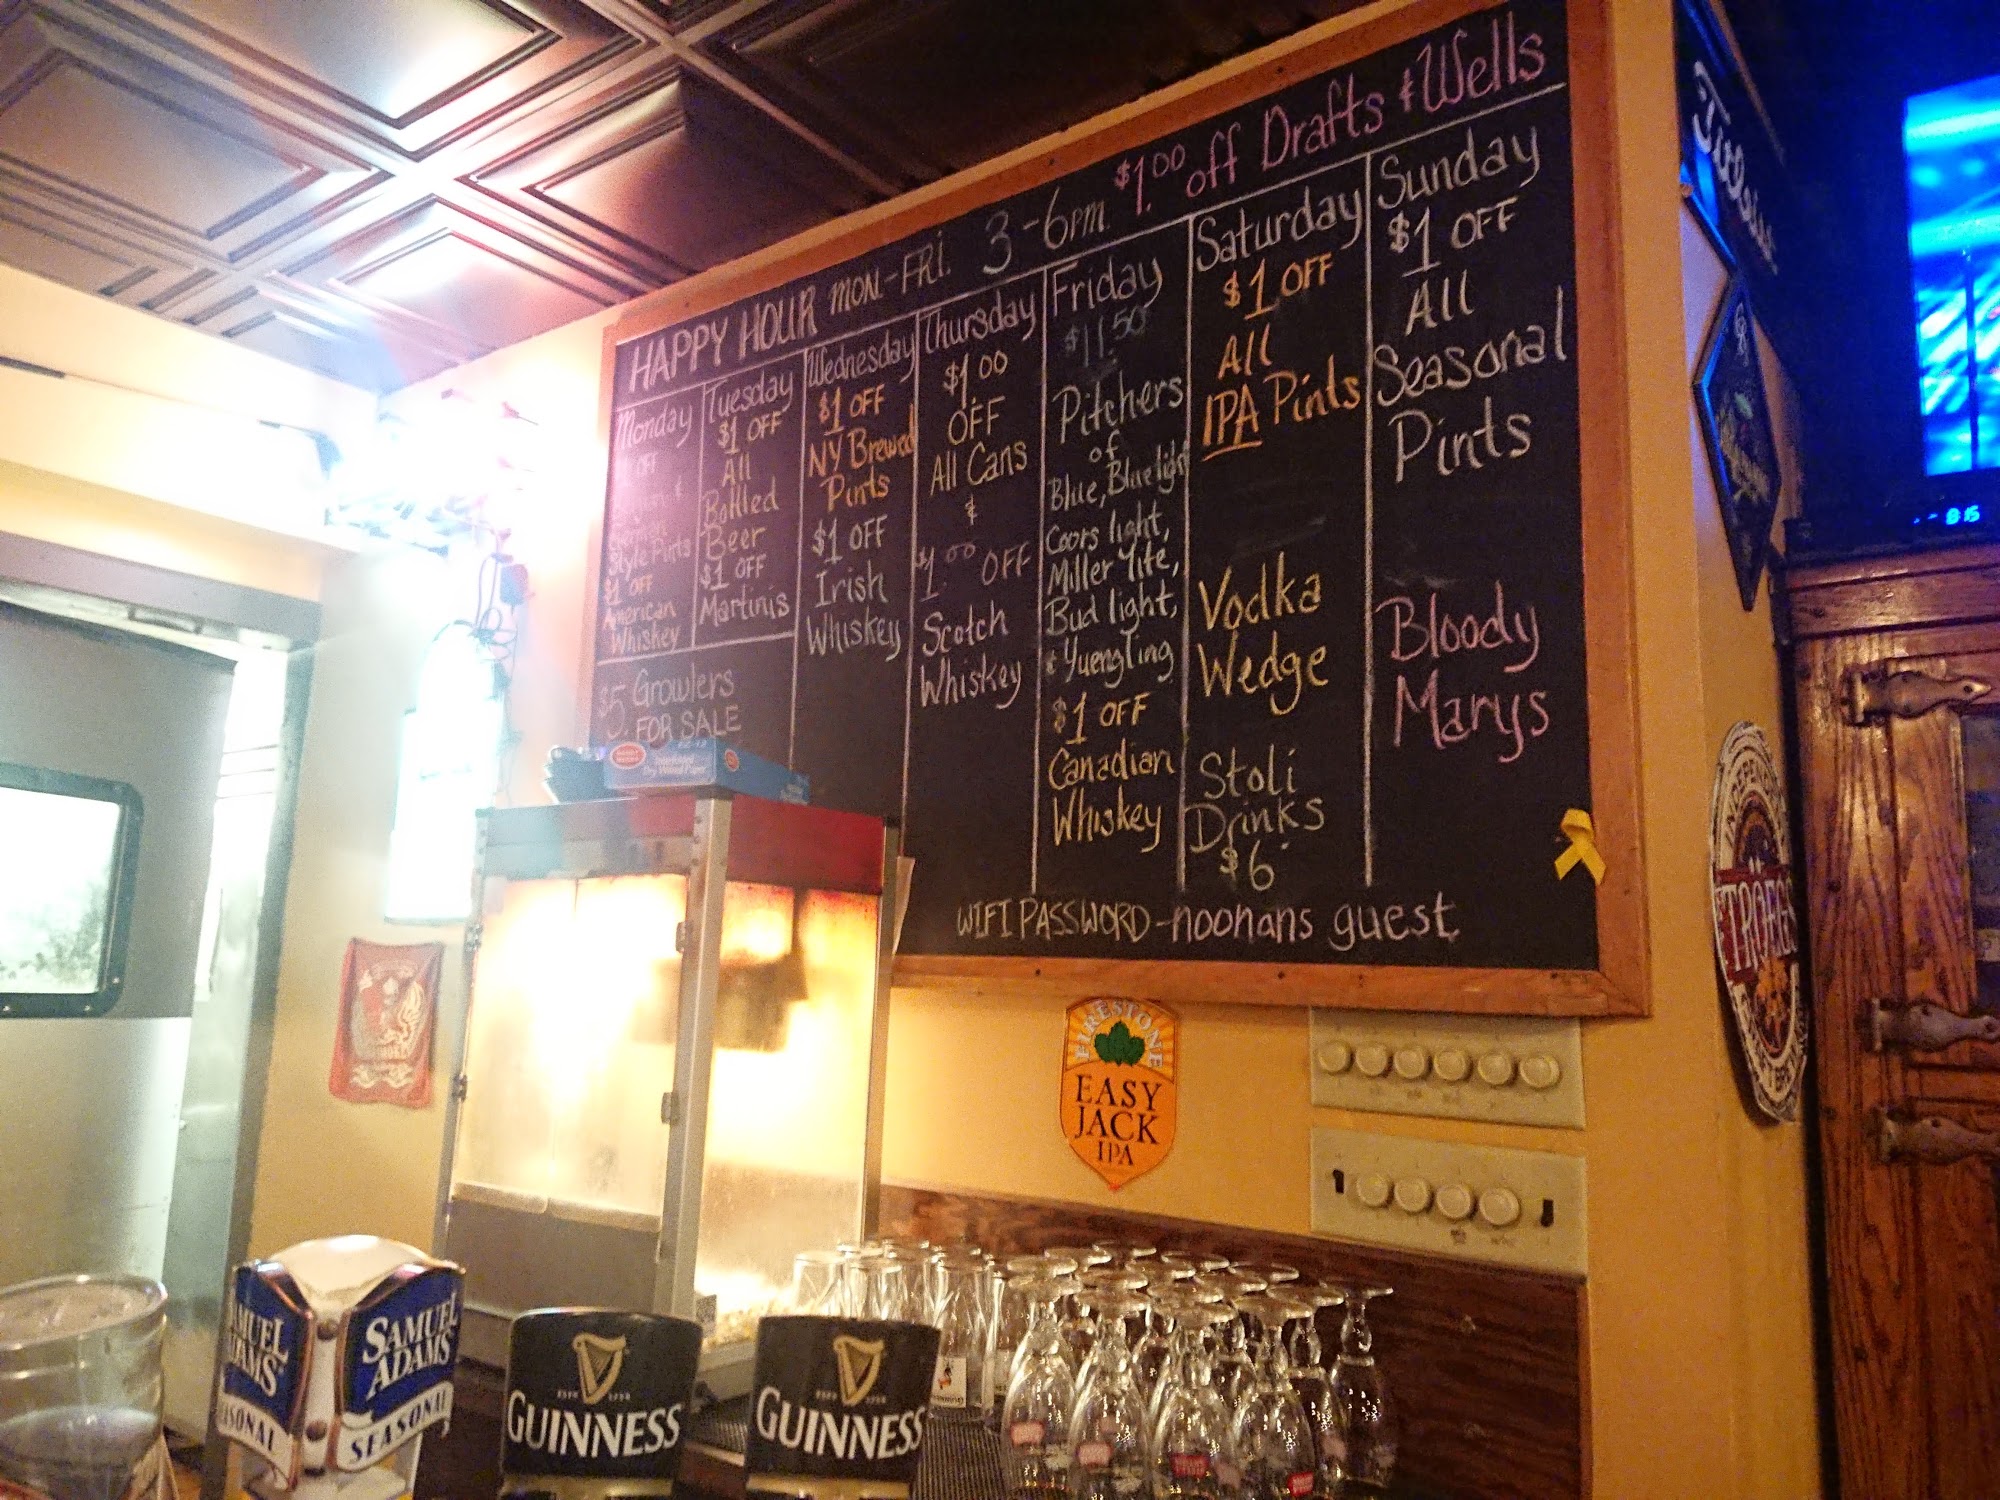 HAPPY HOUR MON.-FRI. 3-6PM. $1.00 off Drafts & Wells
Monday
OFF
&
Style Pints
$1 OFF
American
Whiskey
Tuesday
$1 OFF
All
Bottled
Beer
$1 OFF
Martinis
$5. Growlers
FOR SALE
Wednesday
$1 OFF
NY Brewed
Pints
$1 OFF
Irish
Whiskey
Thursday
$1.00
OFF
All Cans
&
$1.00 OFF
Scotch
Whiskey
Friday
$11.50
Pitchers
of
Blue, Blue light
Coors light,
Miller Lite,
Bud light,
& Yuengling
$1 OFF
Canadian
Whiskey
Saturday
$1 OFF
All
IPA Pints
Vodka
Wedge
Stoli
Drinks
$6
Sunday
$1 OFF
All
Seasonal
Pints
Bloody
Marys
WIFI PASSWORD-noonans guest
Titleist
8:15
TRÖEGS
FIRESTONE
EASY
JACK
IPA
SAMUEL
ADAMS
SEASONAL
SAMUEL
ADAMS
SEASONAL
GUINNESS
GUINNESS